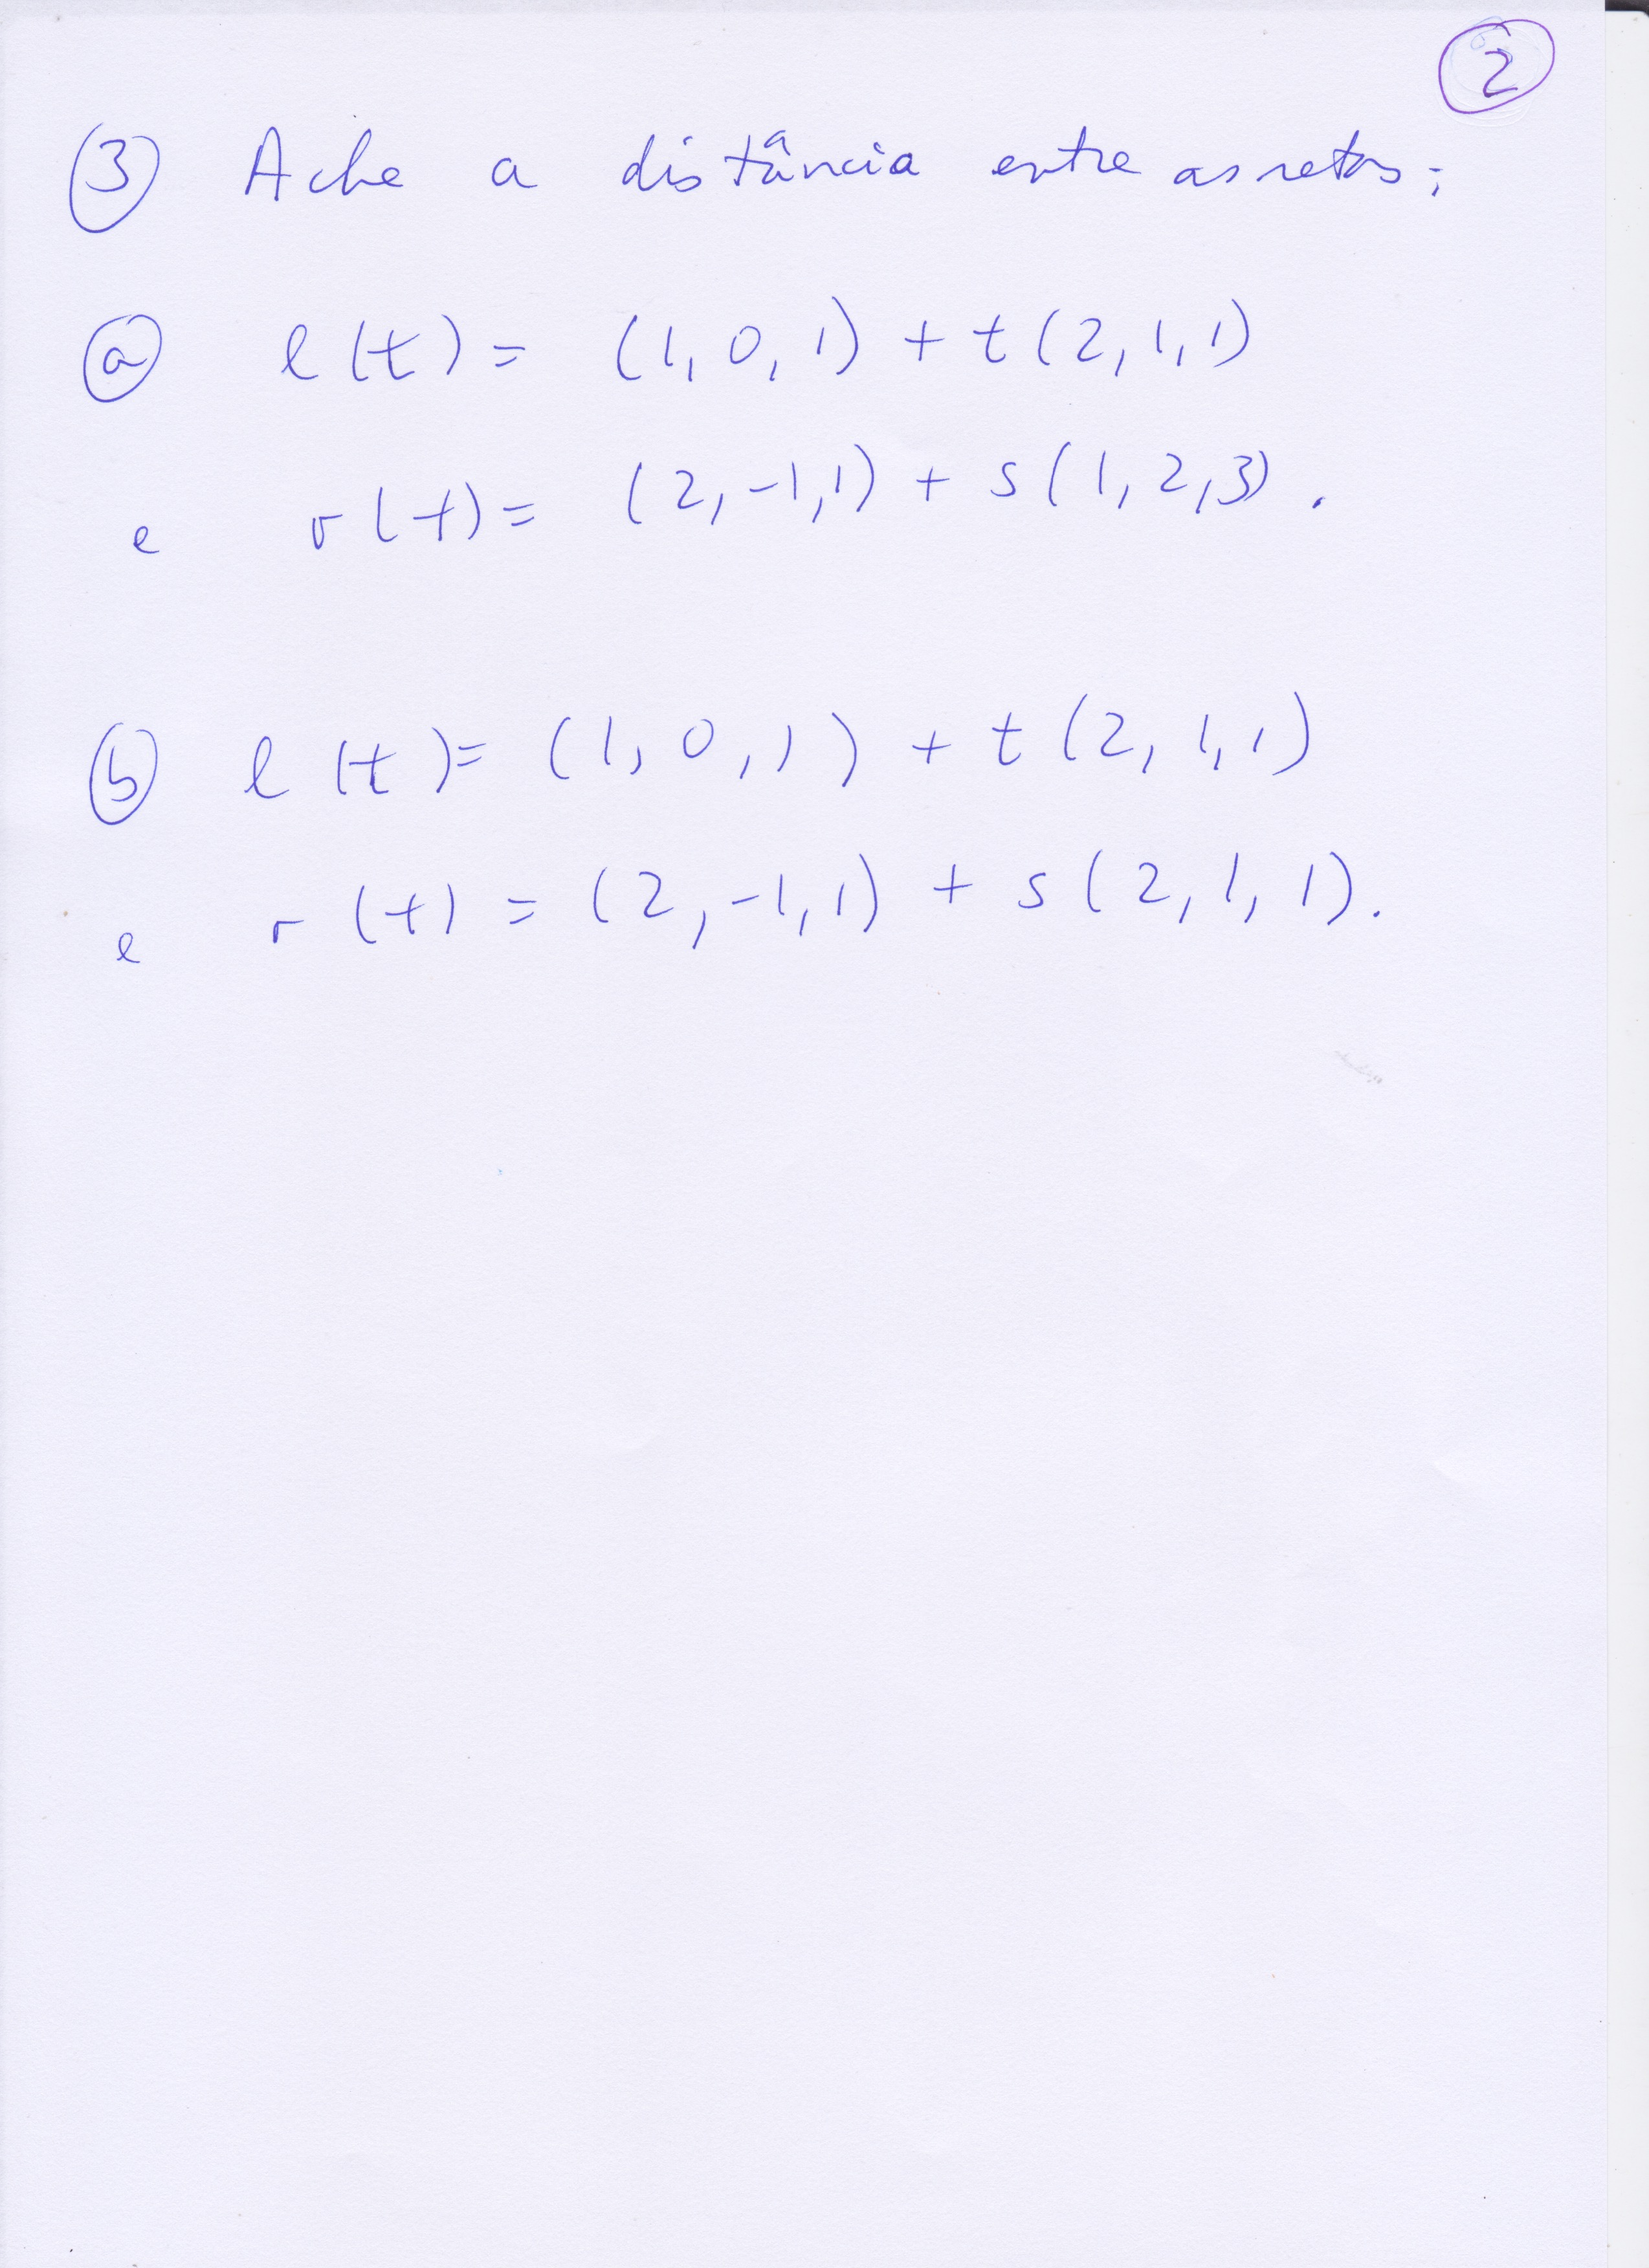 2
3 Ache a distância entre as retas:
a l(t) = (1, 0, 1) + t(2, 1, 1)
e r(t) = (2, -1, 1) + s(1, 2, 3).
b l(t) = (1, 0, 1) + t(2, 1, 1)
e r(t) = (2, -1, 1) + s(2, 1, 1).